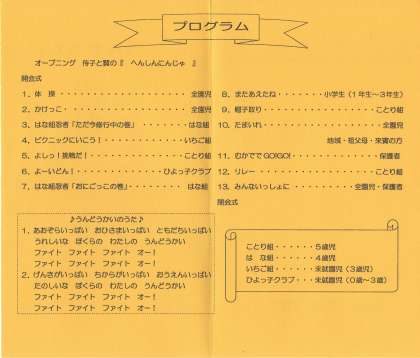 プログラム
オープニング 侍子と賢の『 へんしんにんじゃ 』
開会式
1．体 操・・・・・・・・・・・全園児
2．かけっこ・・・・・・・・・・全園児
3．はな組忍者「ただ今修行中の巻」・・・・・はな組
4．ピクニックにいこう！・・・・・いちご組
5．よしっ！挑戦だ！・・・・・・・ことり組
6．よーいどん！・・・・・・・ひよっ子クラブ
7．はな組忍者「おにごっこの巻」・・・・・・はな組
8．またあえたね・・・・・小学生（１年生～３年生）
9．帽子取り・・・・・・・・・・ことり組
10．たまいれ・・・・・・・・・・・全園児
地域・祖父母・来賓の方
11．むかででGO!GO!・・・・・・・・保護者
12．リレー・・・・・・・・・・・ことり組
13．みんないっしょに・・・・・全園児・保護者
閉会式
♪うんどうかいのうた♪
1．あおぞらいっぱい おひさまいっぱい ともだちいっぱい
うれしいな ぼくらの わたしの うんどうかい
ファイト ファイト ファイト オー！
ファイト ファイト ファイト オー！
2．げんきがいっぱい ちからがいっぱい おうえんいっぱい
たのしいな ぼくらの わたしの うんどうかい
ファイト ファイト ファイト オー！
ファイト ファイト ファイト オー！
ことり組・・・・・・５歳児
は な 組・・・・・・４歳児
いちご組・・・・・・未就園児（３歳児）
ひよっ子クラブ・・・未就園児（０歳～３歳）